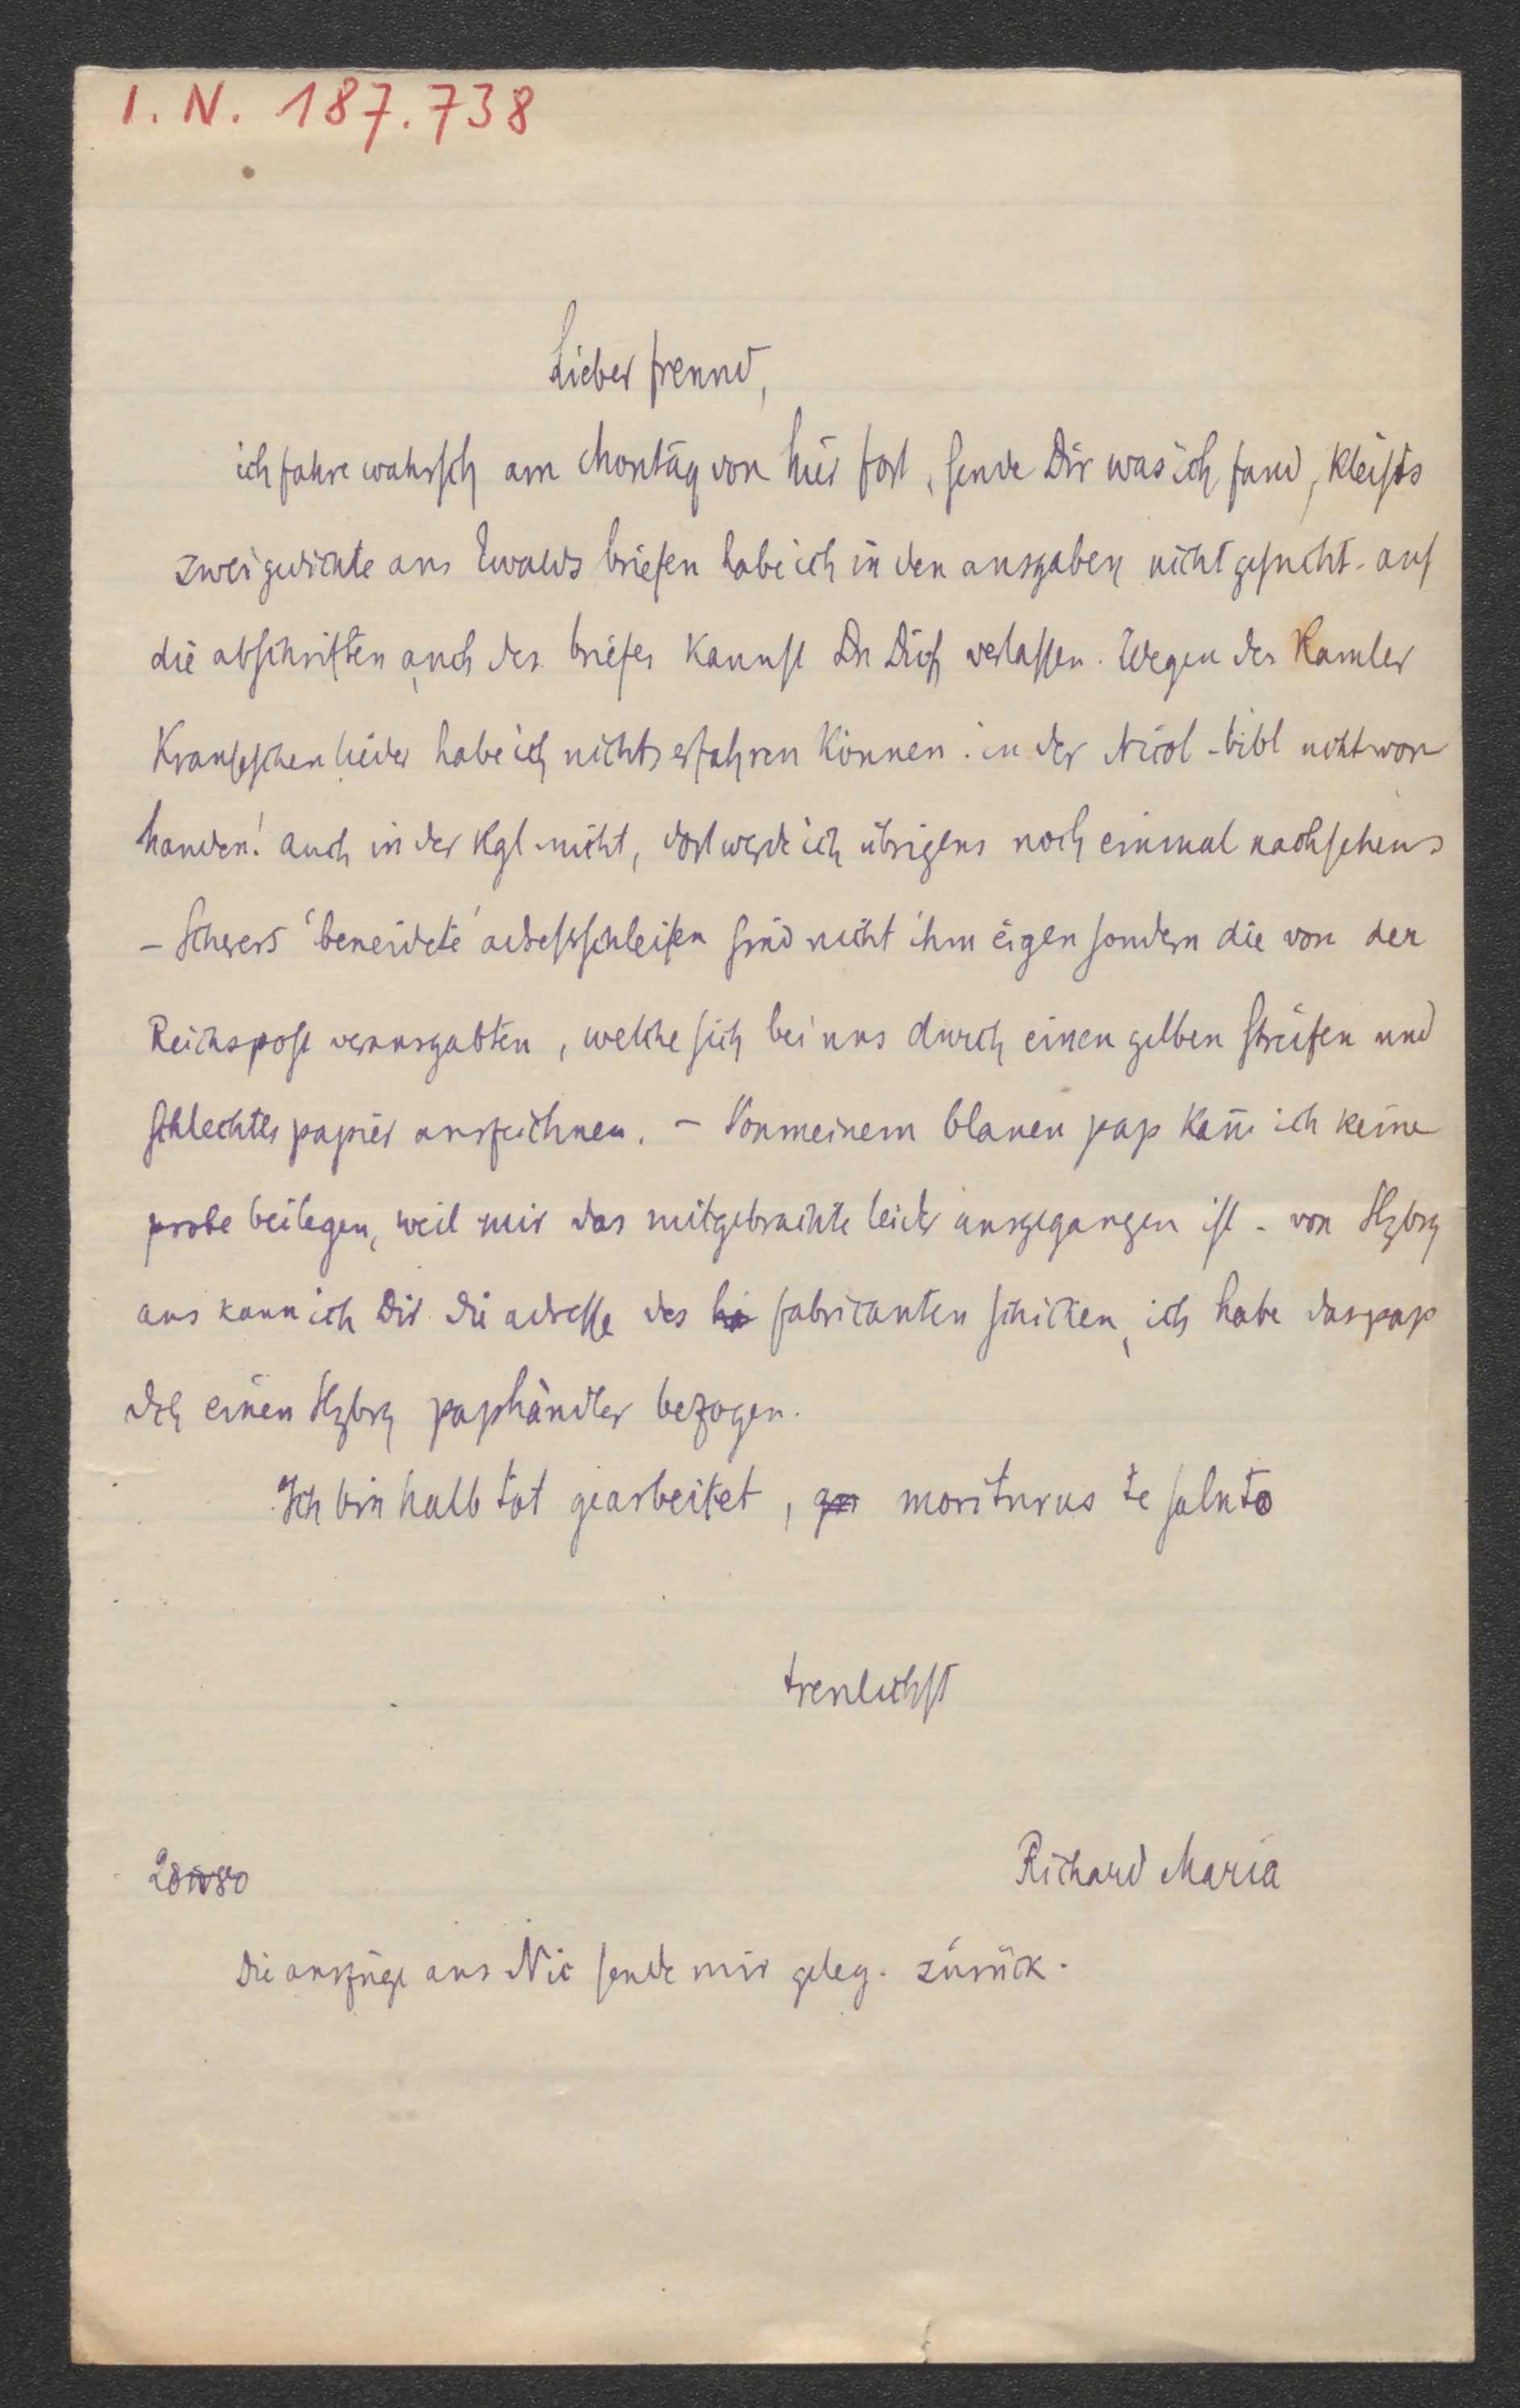 I. N. 187.738
Lieber freund,
ich fahre wahrsch am Montag von hier fort, sende Dir was ich fand, Kleists
zwei gedichte aus Ewalds briefen habe ich in den ausgaben nicht gesucht. auf
die abschriften auch des briefes kannst Du Dich verlassen. Wegen der Ramler
Krauseschen lieder habe ich nichts erfahren können. in der Nicol-bibl nicht vor
handen! auch in der Kgl nicht, dort werde ich übrigens noch einmal nachsehen
– Scherers 'beneidete' adressschleifen sind nicht ihm eigen sondern die von der
Reichspost verausgabten, welche sich bei uns durch einen gelben streifen und
schlechtes papier auszeichnen. – Von meinem blauen pap kann̄ ich keine
probe beilegen, weil mir das mitgebrachte leider ausgegangen ist. von Hzbrg
aus kann ich Dir die adresse des fabricanten schicken, ich habe das pap
dch einen Hzbrg paphändler bezogen.
Ich bin halb tot gearbeitet, moriturus te saluto
treulichst
Richard Maria
28 IV 80
Die auszüge aus Nic sende mir geleg. zurück.